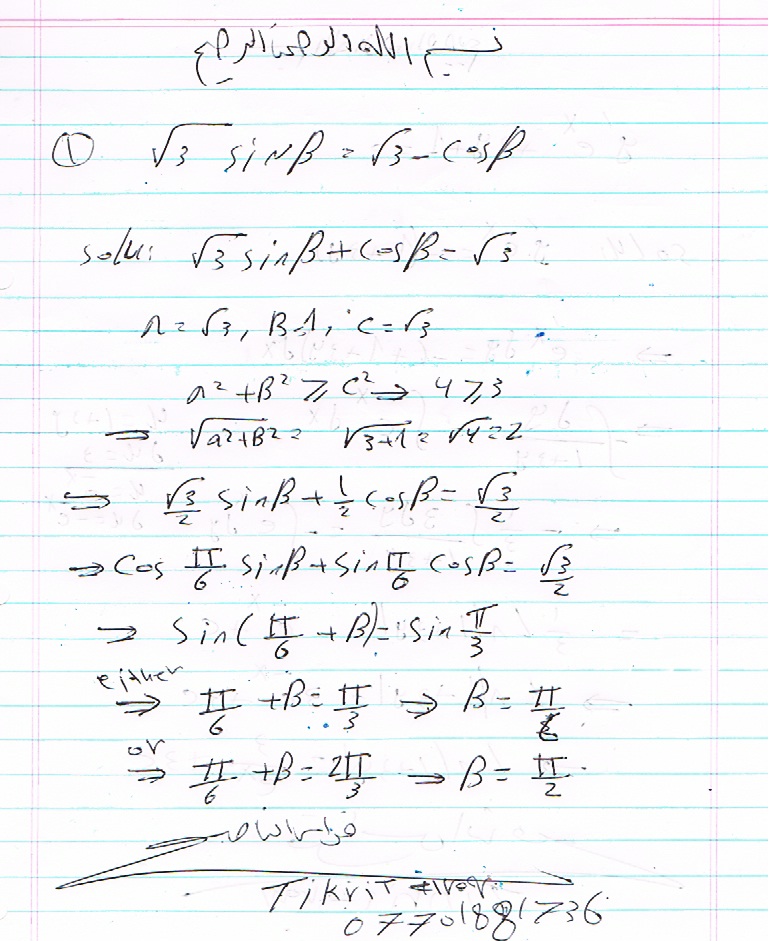 بسم الله الرحمن الرحيم
① √3 sinβ = √3 - cosβ
solu: √3 sinβ + cosβ = √3
A = √3, B = 1, C = √3
a² + B² ⩾ C² → 4 ⩾ 3
⇒ √a²+B² = √3+1 = √4 = 2
⇒ √3/2 sinβ + 1/2 cosβ = √3/2
→ cos π/6 sinβ + sin π/6 cosβ = √3/2
→ sin(π/6 + β) = sin π/3
either
⇒ π/6 + β = π/3 ⇒ β = π/6
or
⇒ π/6 + β = 2π/3 → β = π/2
Tikrit
07701881736